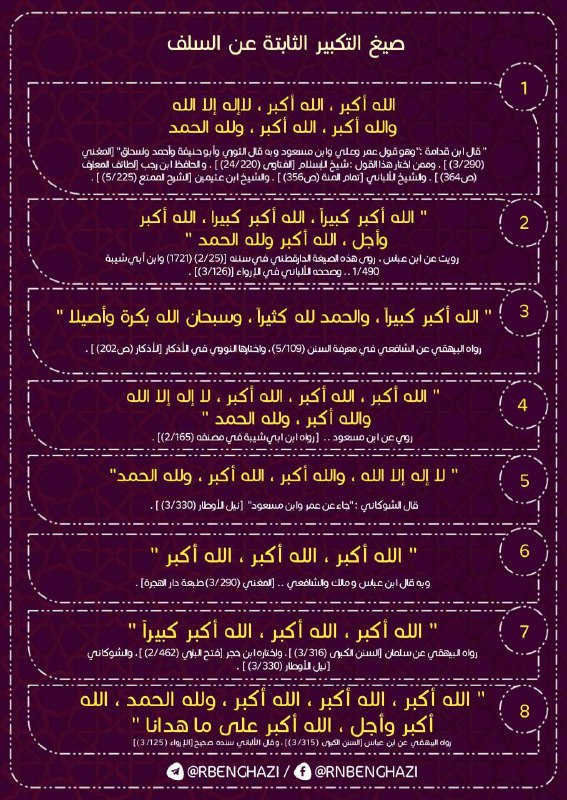 صيغ التكبير الثابتة عن السلف
1
الله أكبر ، الله أكبر ، لاإله إلا الله
والله أكبر ، الله أكبر ، ولله الحمد
" قال ابن قدامة :"وهو قول عمر وعلي وابن مسعود وبه قال الثوري وأبو حنيفة وأحمد وإسحاق" [المغني
(3/290) ] . وممن اختار هذا القول : شيخ الإسلام [الفتاوى (24/220) ] . و الحافظ ابن رجب [لطائف المعارف
(ص364) ] . والشيخ الألباني [تمام المنة (ص356) ] . والشيخ ابن عثيمين [الشرح الممتع (5/225) ] .
2
" الله أكبر كبيراً ، الله أكبر كبيرا ، الله أكبر
وأجل ، الله أكبر ولله الحمد "
رويت عن ابن عباس ، روى هذه الصيغة الدارقطني في سننه [(2/25) (1721) وابن أبي شيبة
1/490 .. وصححه الألباني في الإرواء [(3/126) ] .
3
" الله أكبر كبيراً ، والحمد لله كثيراً ، وسبحان الله بكرة وأصيلا "
رواه البيهقي عن الشافعي في معرفة السنن (5/109)، واختارها النووي في الأذكار [الأذكار (ص202) ] .
4
" الله أكبر ، الله أكبر ، الله أكبر ، لا إله إلا الله
والله أكبر ، ولله الحمد "
روي عن ابن مسعود .. [رواه ابن ابي شيبة في مصنفه (2/165)] .
5
" لا إله إلا الله ، والله أكبر ، الله أكبر ، ولله الحمد"
قال الشوكاني :"جاء عن عمر وابن مسعود" [نيل الأوطار (3/330) ] .
6
" الله أكبر ، الله أكبر ، الله أكبر "
وبه قال ابن عباس و مالك والشافعي .. [المغني (3/290) طبعة دار الهجرة] .
7
" الله أكبر ، الله أكبر ، الله أكبر كبيراً "
رواه البيهقي عن سلمان [السنن الكبرى (3/316) ] . واختاره ابن حجر [فتح الباري (2/462) ] ، والشوكاني
[نيل الأوطار (3/330) ] .
8
" الله أكبر ، الله أكبر ، الله أكبر ، ولله الحمد ، الله
أكبر وأجل ، الله أكبر على ما هدانا "
رواه البيهقي عن ابن عباس [السنن الكبرى (3/315) ] . وقال الألباني سنده صحيح [الإرواء (3/125) ]
@RBENGHAZI / @RNBENGHAZI